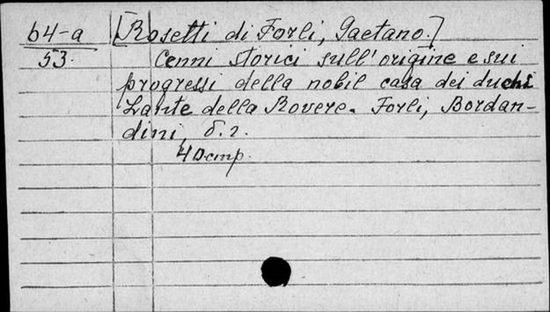 64-а [Rosetti di Forli, Gaetano.]
53. Cenni storici sull'origine e sui
progressi della nobil casa dei duchi
Lante della Rovere. Forli, Bordan-
dini, б. г.
40 стр.